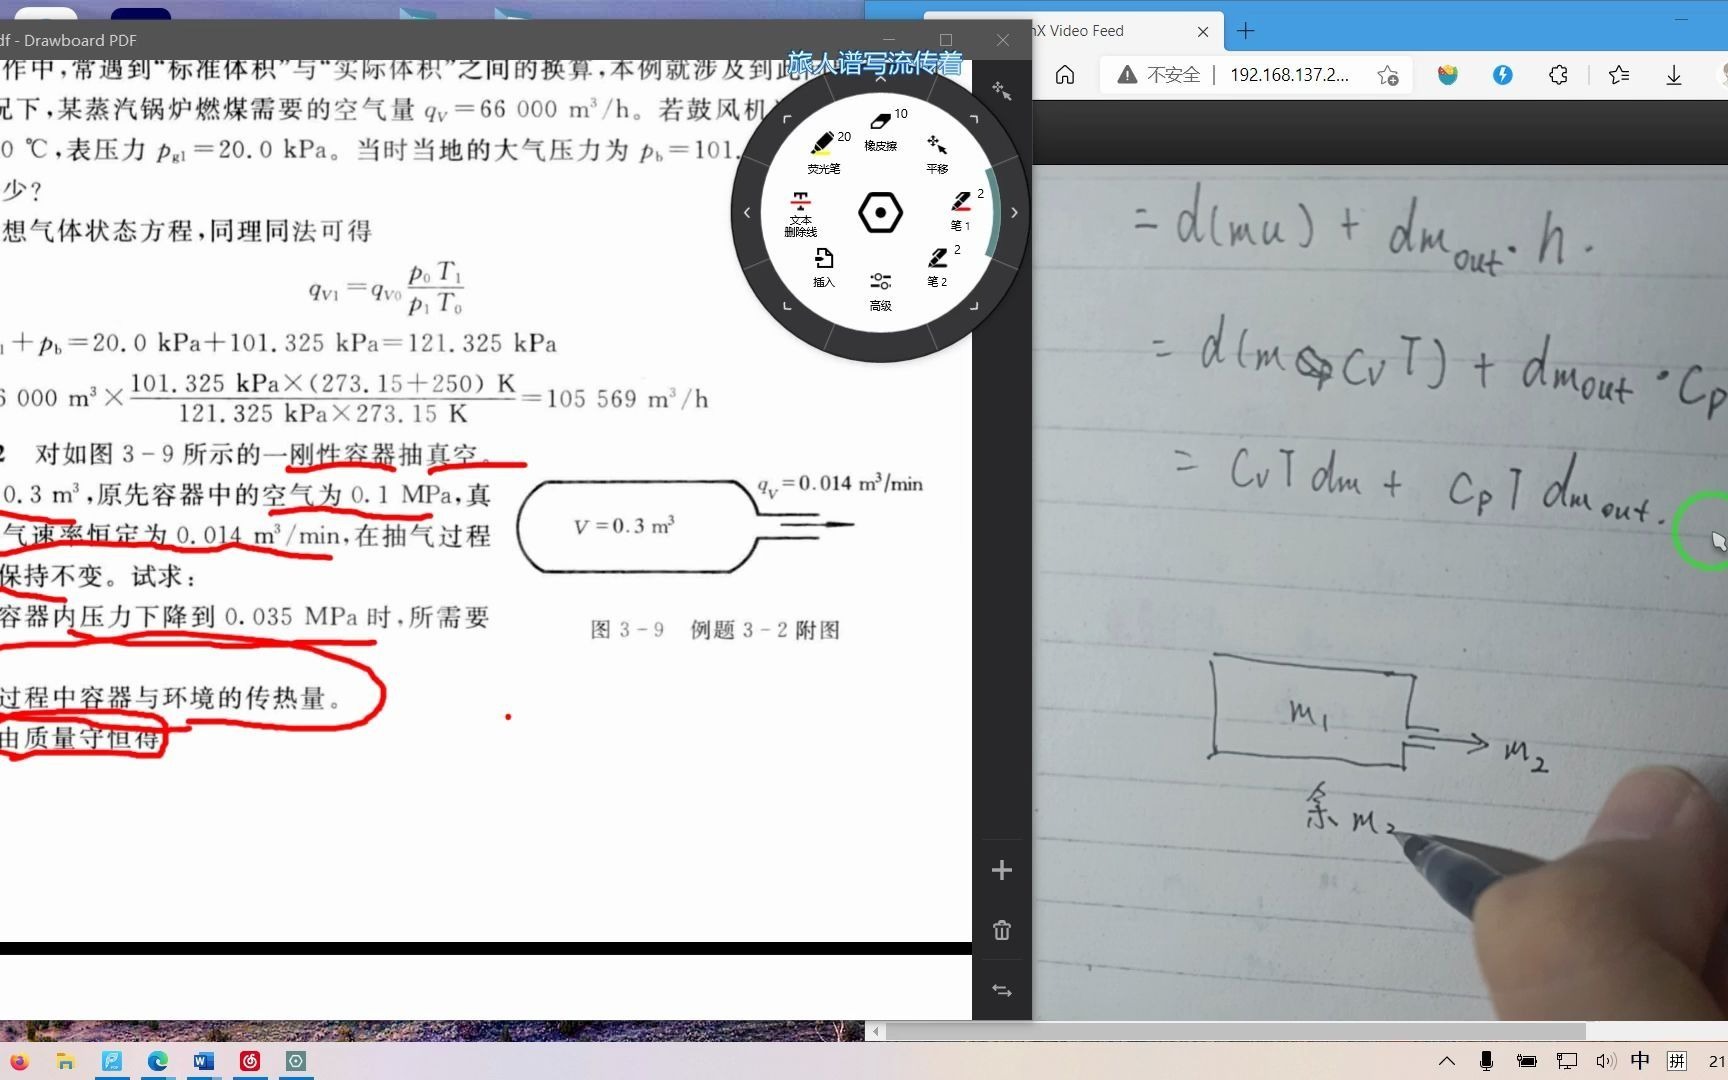 df - Drawboard PDF
旅人谱写流传着
作中，常遇到“标准体积”与“实际体积”之间的换算，本例就涉及到此
况下，某蒸汽锅炉燃煤需要的空气量 qV＝66 000 m³/h。若鼓风机
0 ℃，表压力 pg1＝20.0 kPa。当时当地的大气压力为 pb＝101.
少？
想气体状态方程，同理同法可得
qV1＝qV0 p0 T1 / p1 T0
＋pb＝20.0 kPa＋101.325 kPa＝121.325 kPa
6 000 m³× 101.325 kPa×(273.15＋250) K / 121.325 kPa×273.15 K ＝105 569 m³/h
2 对如图 3－9 所示的一刚性容器抽真空。
0.3 m³，原先容器中的空气为 0.1 MPa，真
气速率恒定为 0.014 m³/min，在抽气过程
保持不变。试求：
容器内压力下降到 0.035 MPa 时，所需要
过程中容器与环境的传热量。
由质量守恒得
V＝0.3 m³
qV＝0.014 m³/min
图 3－9 例题 3－2 附图
10
橡皮擦
20
荧光笔
平移
文本
删除线
2
笔 1
插入
2
笔 2
高级
X Video Feed
不安全
192.168.137.2...
= d(mu) + dm out · h.
= d(m Cv T) + dm out · Cp
= CvT dm + CpT dm out.
m1
m2
余 m2
中
拼
21